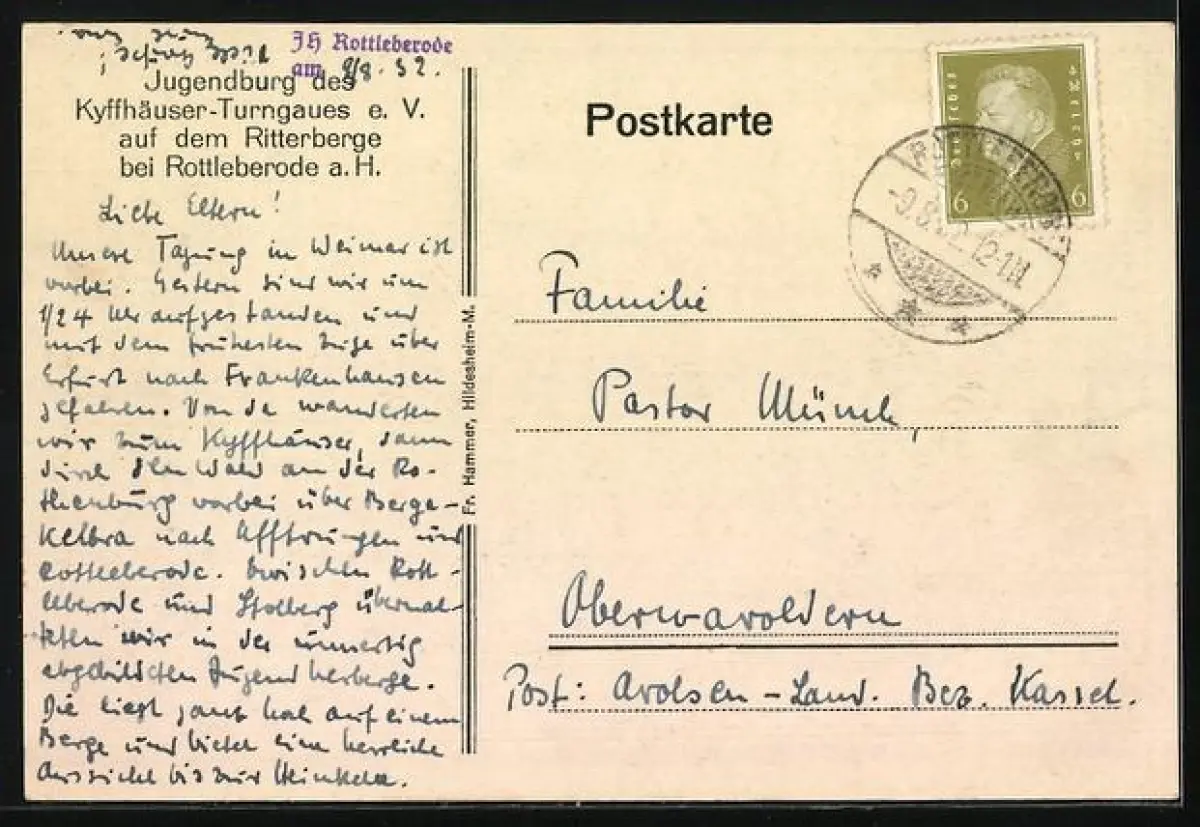 JH Rottleberode
am 9/8. 32.
Jugendburg des
Kyffhäuser-Turngaues e. V.
auf dem Ritterberge
bei Rottleberode a. H.
Liebe Eltern!
Unsere Tagung in Weimar ist
vorbei. Gestern sind wir um
1/24 Uhr aufgestanden und
mit dem frühesten Zuge über
Erfurt nach Frankenhausen
gefahren. Von da wanderten
wir zum Kyffhäuser, dann
durch den Wald an der Ro-
thenburg vorbei über Berga-
Kelbra nach Uftrungen und
Rottleberode. Zwischen Rott-
leberode und Stolberg übernach-
teten wir in der
abgebildeten Jugendherberge.
Die liegt ganz hoch auf einem
Berge und bietet eine herrliche
Aussicht bis zur
Fr. Hammer, Hildesheim-M.
Postkarte
6 6
-9.8.32.12-1N.
Familie
Pastor Münch,
Oberwaroldern
Post: Arolsen-Land. Bez. Kassel.